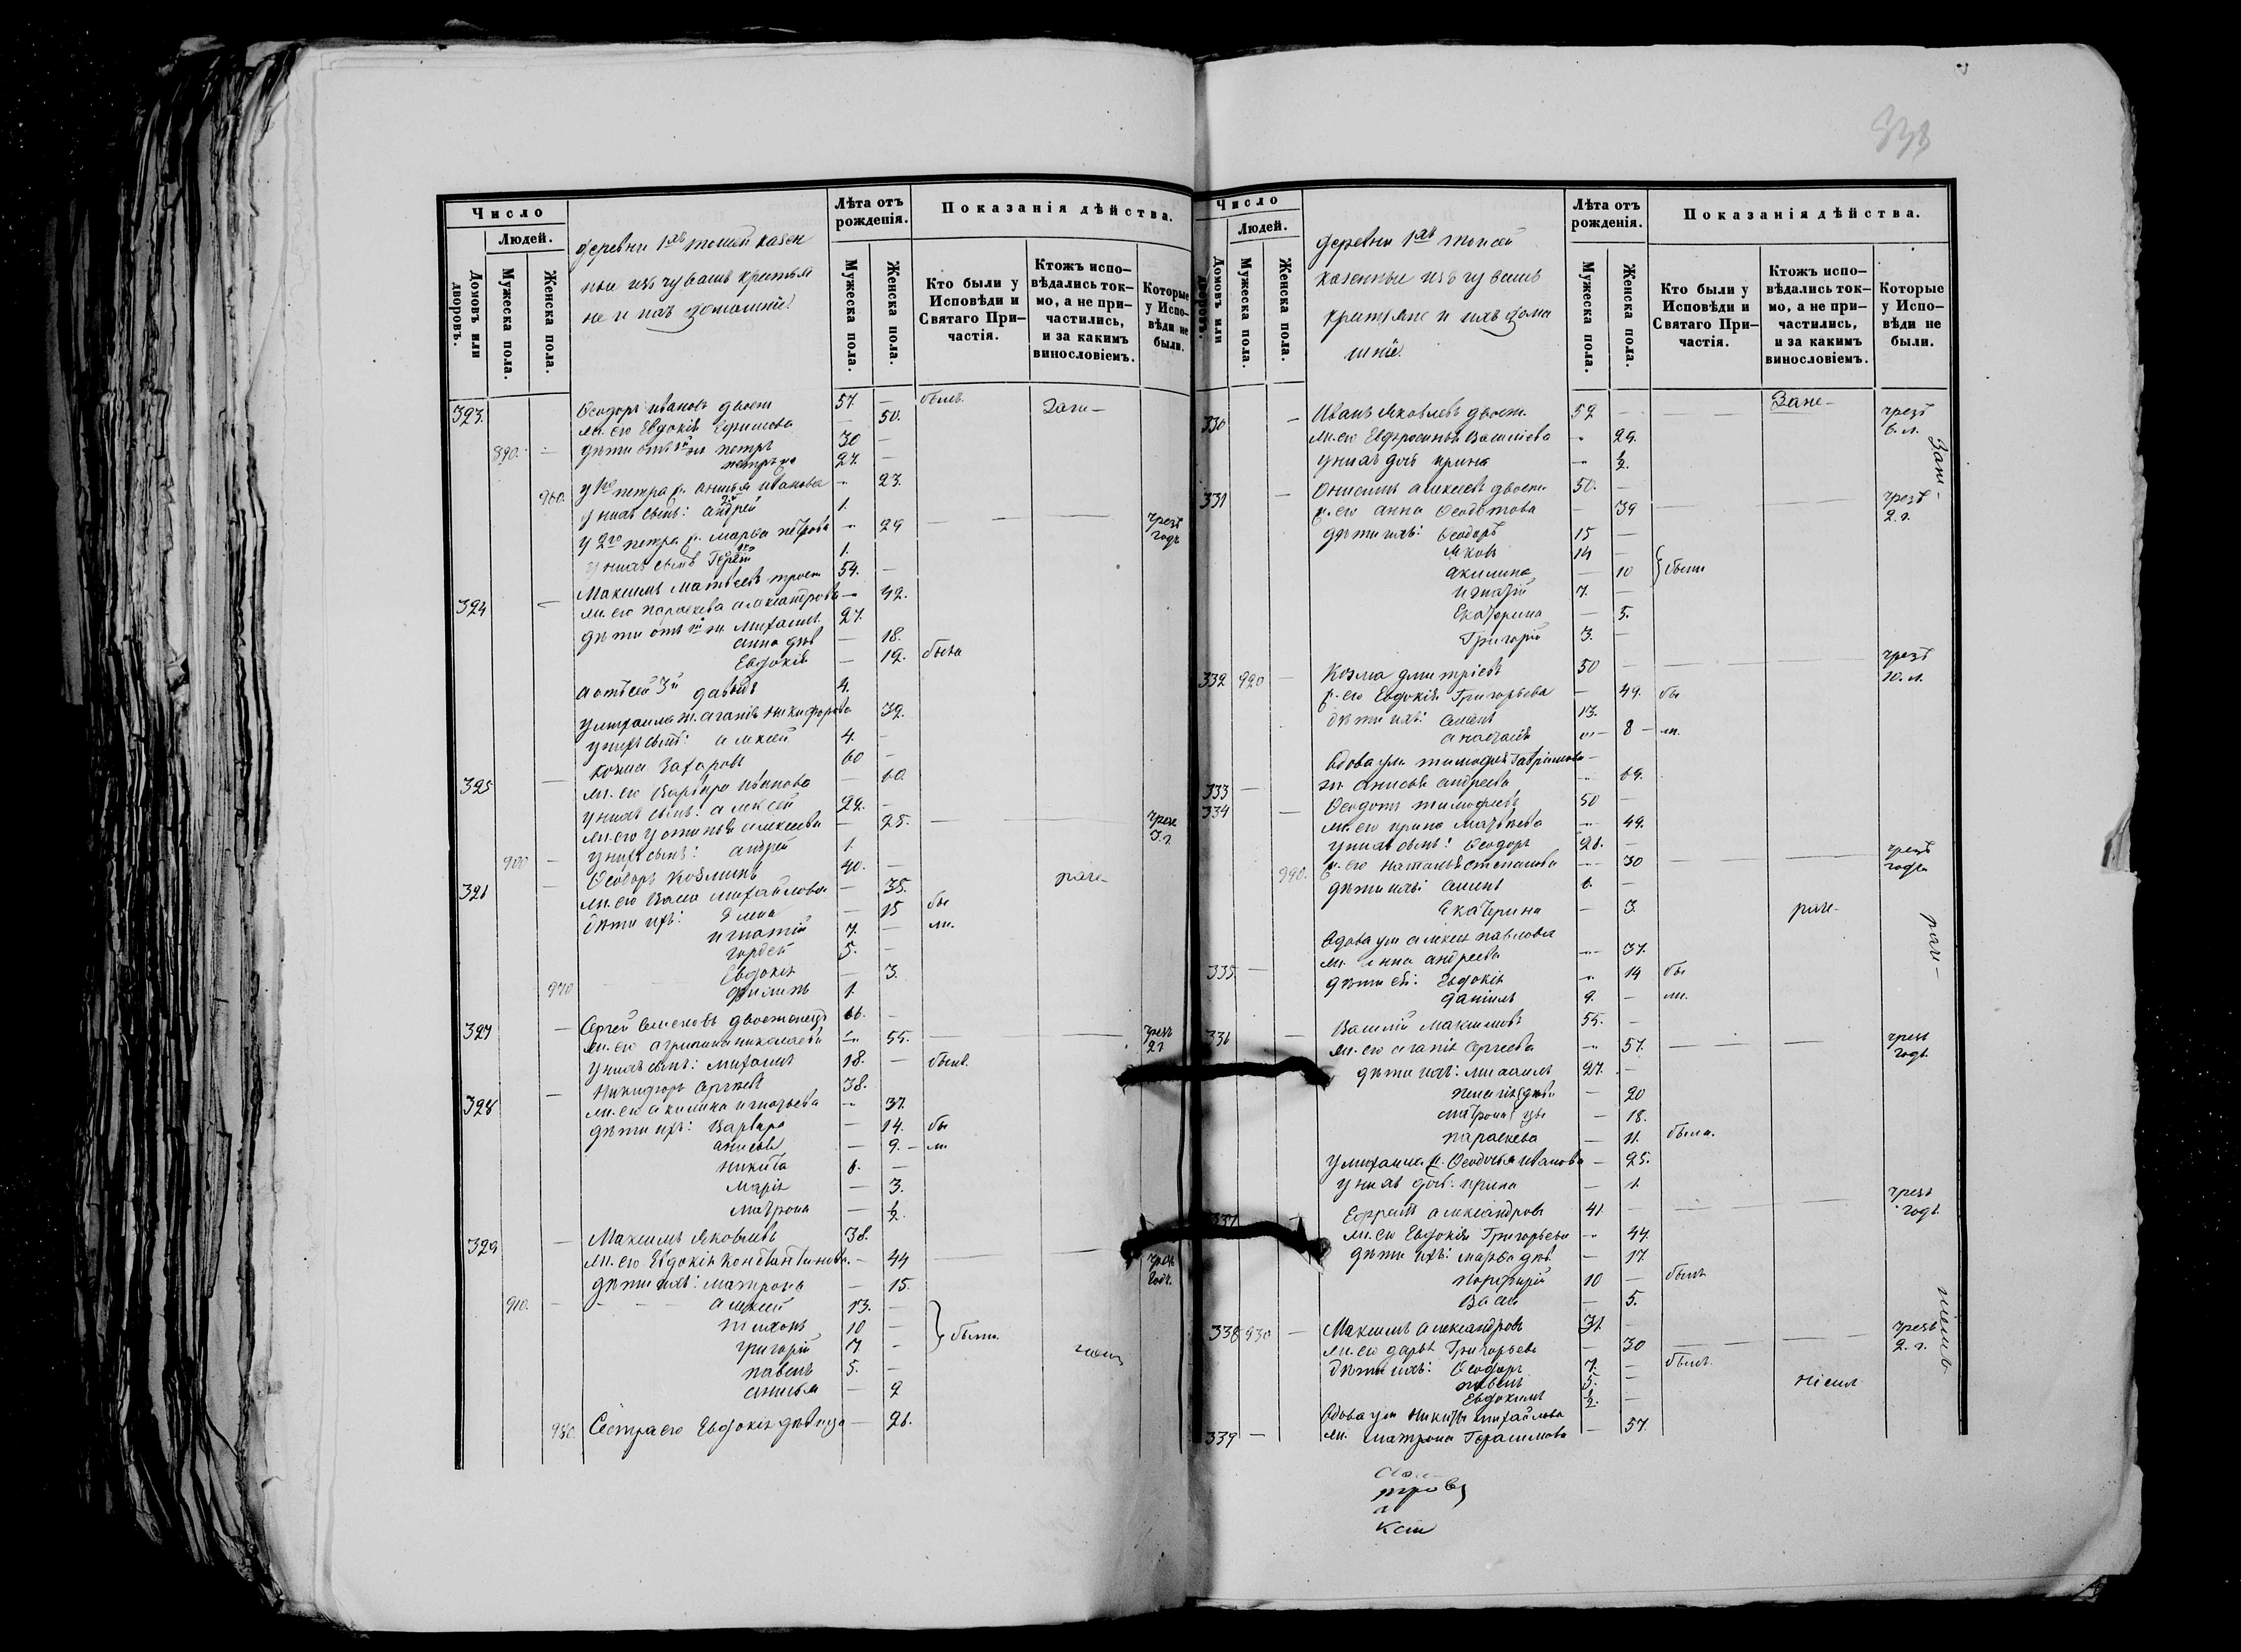 Число
Людей.
Домовъ или дворовъ.
Мужеска пола.
Женска пола.
деревни 1хъ томей казен
ные изъ чувашъ крестья
не и ихъ домашніе
Лѣта отъ рожденія.
Мужеска пола.
Женска пола.
Показанія дѣйства.
Кто были у Исповѣди и Святаго Причастія.
Ктожъ исповѣдались токмо, а не причастились, и за какимъ винословіемъ.
Которые у Исповѣди не были.
323. Ѳеодоръ Ивановъ двоеж 57 — былъ.
ж. его Евдокія Ефимова — 50.
890. дѣти отъ 1й ж Петръ 30 —
Петръ 2й 27. —
960. у 1го Петра ж. Анисья Иванова — 23.
у нихъ сынъ: Андрей 1.
у 2го Петра ж. Марѳа Петрова — 29 — — чрезъ годъ
у нихъ сынъ 1.
Максимъ Матвеевъ троеж 54. —
324 — ж. его Параскева Александрова — 42.
дѣти отъ 1й ж. Михаилъ 27.
Анна дѣв — 18.
Евдокія — 12. была
а отъ сей 3й Давыдъ 4.
у Михаила ж. Агапія Никифорова 32.
у нихъ сынъ: Алексей 4. —
Козма Захаровъ 60 —
325 — ж. его Варвара Иванова — 60.
у нихъ сынъ: Алексей 22. —
ж. его Устинья Алексеева — 25. — чрез 3. г.
900 — у нихъ сынъ: Андрей 1. —
Ѳеодоръ Козминъ 40. —
326 — ж. его Васса Михайлова — 35.
дѣти ихъ: Елена — 15 бы
Игнатій 7. — ли.
Гордей 5. —
Евдокія — 3.
970 Филипъ 1.
Сергей Семеновъ двоеженецъ 66. —
327 — ж. его Агрипина Николаева — 55. — — чрезъ 2 г
у нихъ сынъ: Михаилъ 18. — былъ.
Никифоръ Сергеевъ 38.
328 — ж. его Акилина Игнатьева — 37.
дѣти ихъ: Варвара — 14. бы
Анисья — 9. — ли
Никита 6. —
Марія — 3.
Матрона — ½.
Максимъ Яковлевъ 38.
329 — ж. его Евдокія Константинова. — 44 — — чрезъ годъ.
дѣти ихъ: Матрона — 15.
910. — Алексей 13. —
Тихонъ 10 — были.
Григорій 7 —
Павелъ 5. —
Анисья — 2
980. Сестра его Евдокія дѣвица — 26.
Число
Людей.
Домовъ или дворовъ.
Мужеска пола.
Женска пола.
деревни 1хъ томей
казенные изъ чувашъ
крестьяне и ихъ дома
шніе.
Лѣта отъ рожденія.
Мужеска пола.
Женска пола.
Показанія дѣйства.
Кто были у Исповѣди и Святаго Причастія.
Ктожъ исповѣдались токмо, а не причастились, и за какимъ винословіемъ.
Которые у Исповѣди не были.
330 — Иванъ Яковлевъ двоеж. 52 — — чрезъ 6. л.
ж. его Евфросинья Василіева — 29.
у нихъ дочь Ирина — ½.
331 — Онисимъ Алексеевъ двоеж. 50. —
ж. его Анна Ѳеодотова — 39 — чрезъ 2. г.
дѣти ихъ: Ѳеодоръ 15 —
Яковъ 14 —
Акилина — 10 были
Игнатій 7. —
Екатерина — 5.
Григорій 3. —
332 920 — Козма Дмитріевъ 50 — — — чрезъ 10. л.
ж. его Евдокія Григорьева — 49. бы
дѣти ихъ: Семенъ 13.
Анастасія — 8 — ли.
Вдова ум. Тимофея Гавриилова —
333 — ж. Анисья Андреева — 69.
334 — Ѳеодотъ Тимофеевъ 50 —
ж. его Ирина Матвеева — 49.
у нихъ сынъ: Ѳеодоръ 21. —
990. ж. его Наталья Степанова — 30 — чрезъ года
дѣти ихъ: Семенъ 6. —
Екатерина — 3.
Вдова ум Алексея Павлова
335. — ж. Анна Андреева — 37.
дѣти ея: Евдокія — 14 бы
Даніилъ 9. — ли.
Василій Максимовъ 55. —
336 — ж. его Агапія Сергеева — 57. — — чрезъ годъ.
дѣти ихъ: Михаилъ 27. —
Пелагія дѣви — 20
Матрона цы — 18.
Параскева — 11. была.
у Михаила ж. Ѳеодосья Иванова — 25.
у нихъ доч: Ирина — 1.
337 — Ефремъ Александровъ 41. — — — чрезъ годъ.
ж. его Евдокія Григорьева — 44.
дѣти ихъ: Марѳа дѣв. — 17.
Порфирій 10 — былъ
Васса — 5.
338 930 — Максимъ Александровъ 31. — чрезъ 2. г.
ж. его Дарья Григорьева — 30 — —
дѣти ихъ: Ѳеодоръ 7. — былъ.
Павелъ 5. —
Евдокимъ ½. —
Вдова ум Никиты Михайлова
339 — ж. Матрона Герасимова — 57.